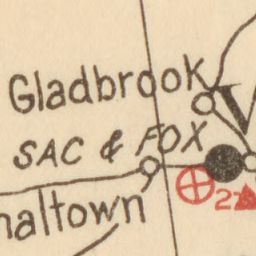 Gladbrook
SAC & FOX
haltown
2